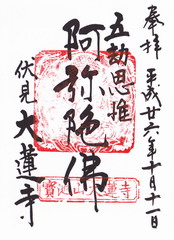 奉拝 平成廿六年十月十一日
五劫思惟
阿弥陀佛
伏見 大蓮寺
寳池山大蓮寺